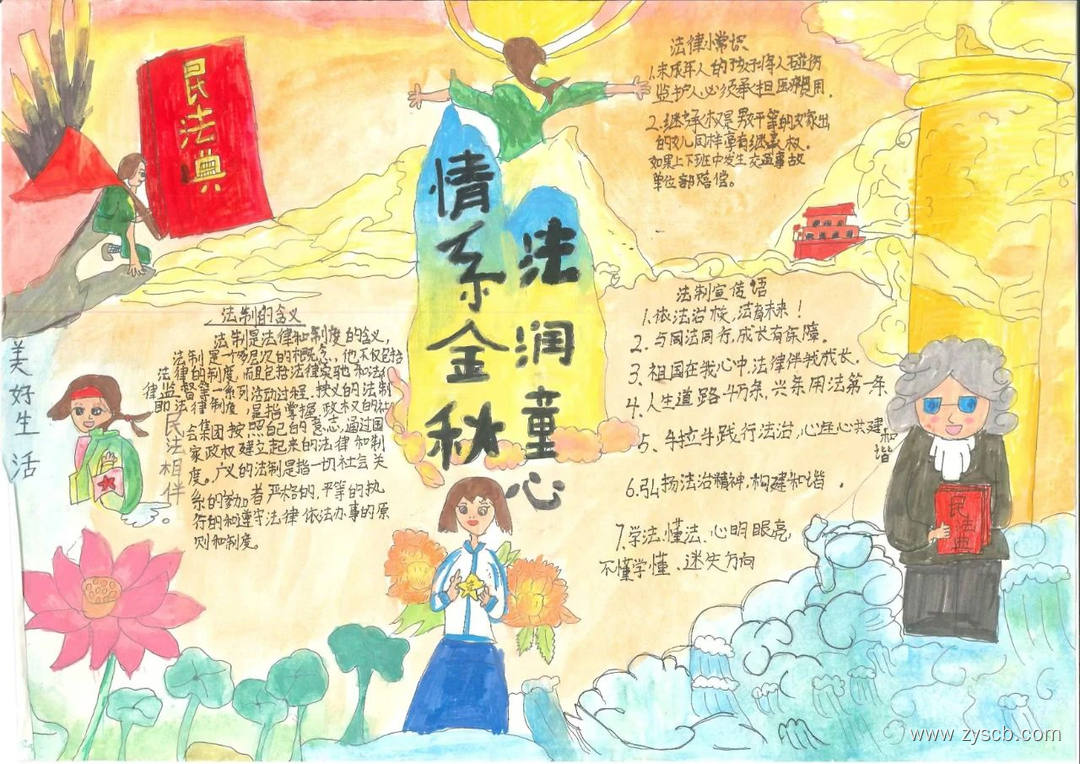 民法典
情系金秋
法润童心
法律小常识
1.未成年人的孩子将人碰伤
监护人必须承担医疗费用.
2.继承权是男女平等的
的女儿同样享有继承权.
如果上下班中发生交通事故
单位都赔偿。
法制的含义
法制是法律和制度的含义,
法制是一个多层次的概念,他不仅包括
法律的制度,而且包括法律实施和法
律监督等一系列活动过程.狭义的法制
法律制度,是指掌握政权的社
会集团按照自己的意志,通过国
家政权建立起来的法律和制
度。广义的法制是指一切社会关
系的参加者严格的,平等的执
行的和遵守法律依法办事的原
则和制度。
美好生活
民法相伴。
法制宣传语
1.依法治校,法育未来!
2.与同法同行,成长有保障.
3.祖国在我心中,法律伴我成长.
4.人生道路千万条,兴条用法第一年
5、牛拉牛践行法治,心连心共建和谐
6.弘扬法治精神,构建和谐.
7.学法、懂法、心明眼亮,
不懂学懂、迷失方向
民法典
www.zyscb.com